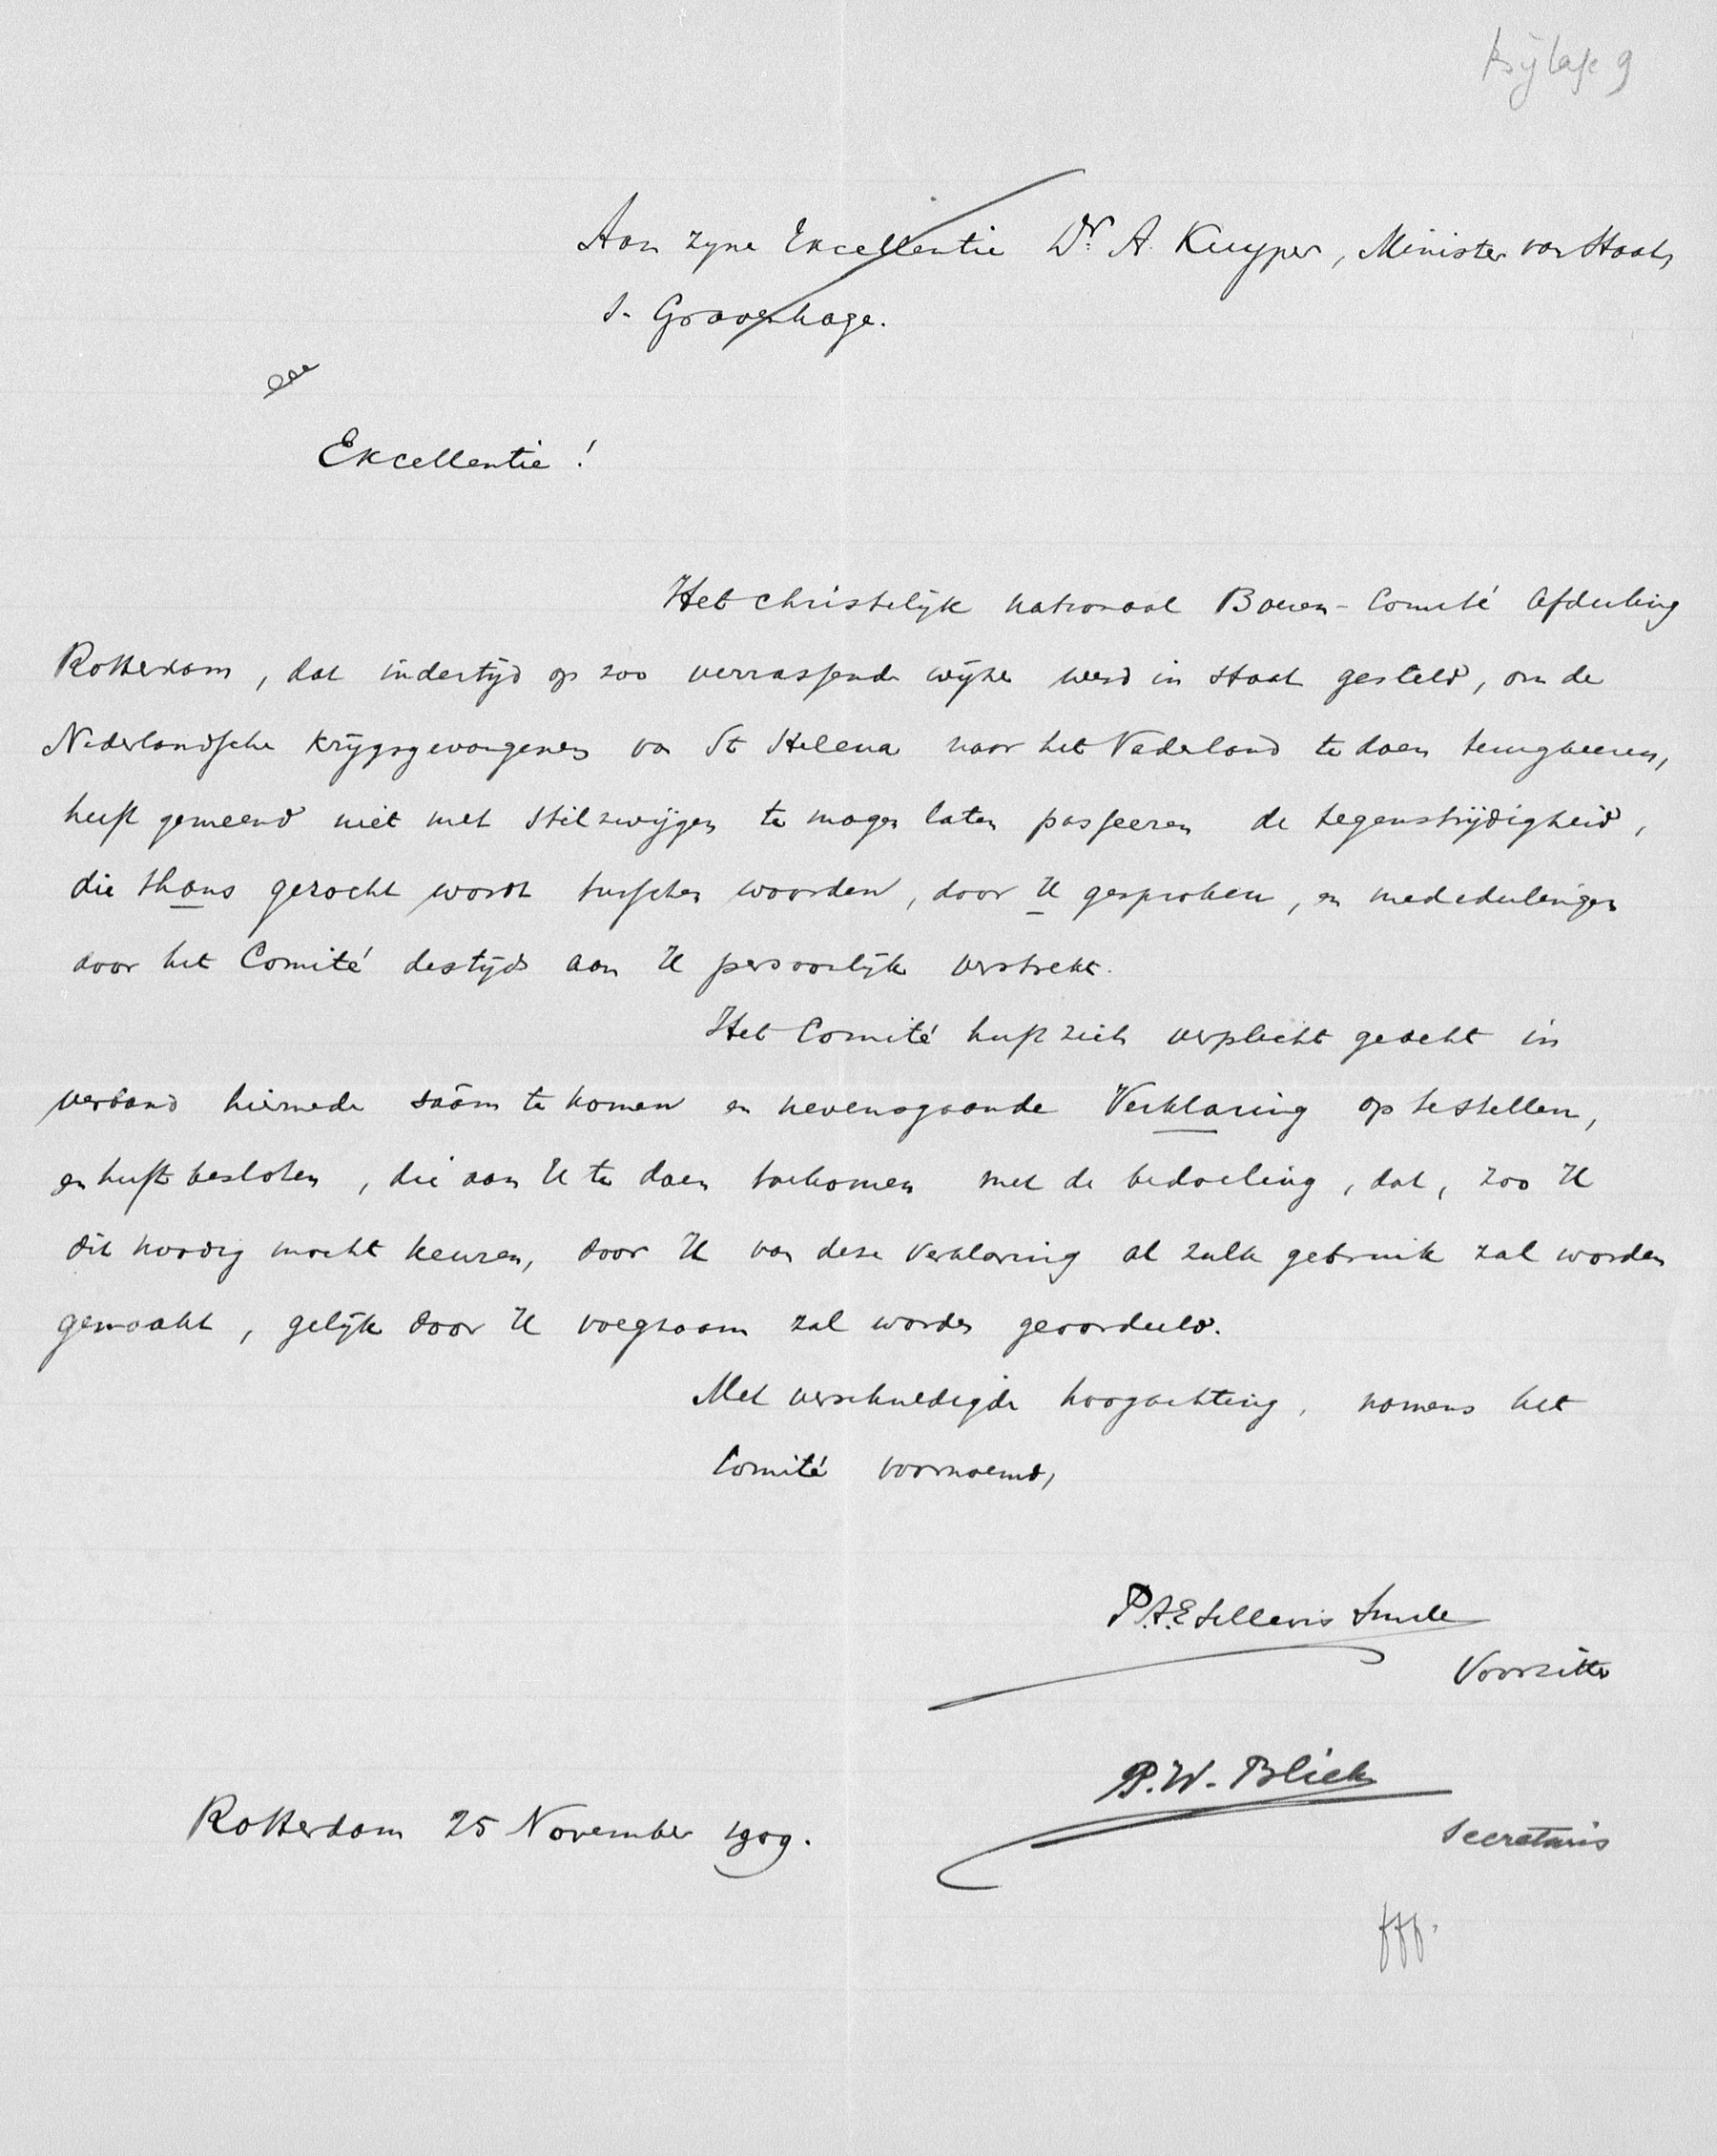 Bijlage 9
Aan zyne Excellentie Dr. A. Kuyper, Minister van Staat,
s- Gravenhage.
Excellentie!
Het christelijk nationaal Boeren-Comité Afdeeling
Rotterdam, dat indertijd op zoo verrassende wijze werd in staat gesteld, om de
Nederlandsche krijgsgevangenen van St Helena naar het Vaderland te doen terugkeeren,
heeft gemeend niet met stilzwijgen te mogen laten passeeren de tegenstrijdigheid,
die thans gezocht wordt tusschen woorden, door U gesproken, en mededeelingen
door het Comité destijds aan U persoonlijk verstrekt.
Het Comité heeft zich verplicht geacht in
verband hiermede saâm te komen en nevensgaande Verklaring op te stellen,
en heeft besloten, die aan U te doen toekomen met de bedoeling, dat, zoo U
dit noodig mocht keuren, door U van deze verklaring al zulk gebruik zal worden
gemaakt, gelijk door U voegzaam zal worden geoordeeld.
Met verschuldigde hoogachting, namens het
Comité voornoemd,
P.A.E Sillevis Smitt
Voorzitter
P.W. Bliek
Secretaris
Rotterdam 25 November 1909.
fff.